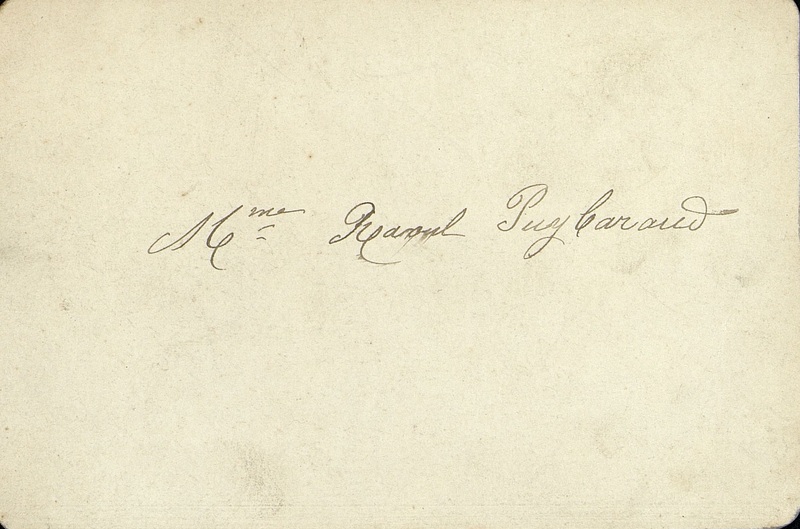 Mme Raoul Puybaraud